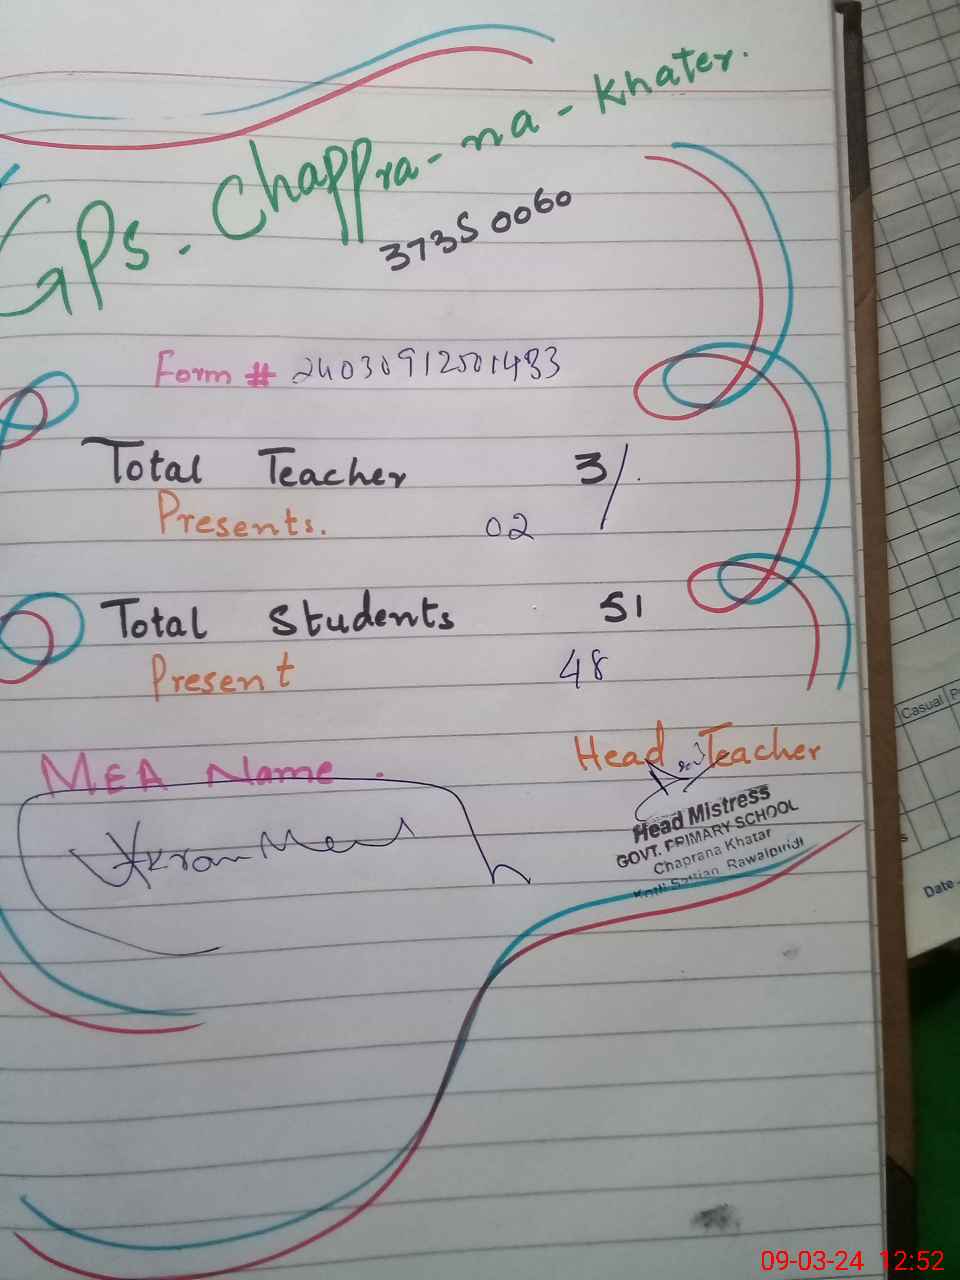 GPS. Chappra-na-Khater.
37350060
Form # 24030912501433
Total Teacher 3/.
Presents. 02
Total Students 51
Present 48
MEA Name.
Head Teacher
Akram
Head Mistress
GOVT. PRIMARY SCHOOL
Chaprana Khatar
Kotli Sattian, Rawalpindi
Casual
Date
09-03-24 12:52